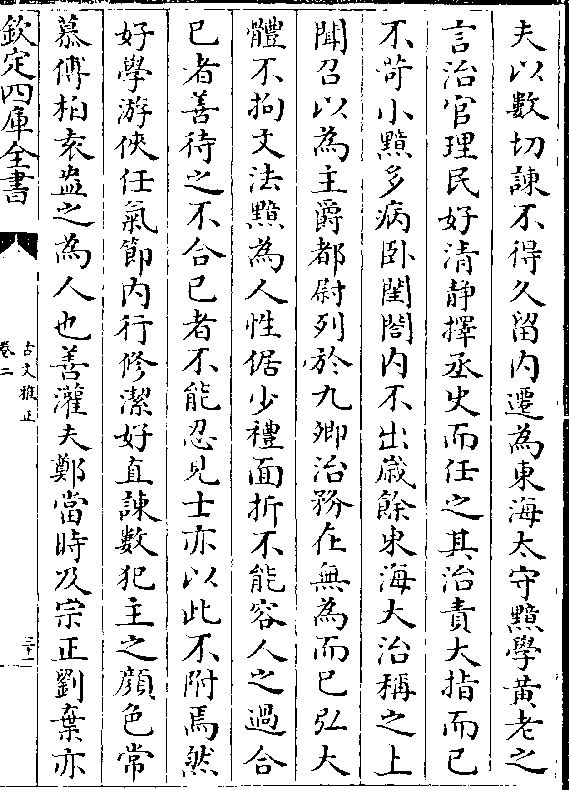 夫以數切諫不得久留内遷為東海太守黯學黄老之
言治官理民好清静擇丞史而任之其治責大指而已
不苛小黯多病卧閨閤内不出歳餘東海大治稱之上
聞召以為主爵都尉列於九卿治務在無為而已弘大
體不拘文法黯為人性倨少禮面折不能容人之過合
已者善待之不合已者不能忍見士亦以此不附焉然
好學游俠任氣節内行修潔好直諫數犯主之顔色常
慕傅柏袁盎之為人也善灌夫鄭當時及宗正劉棄亦
欽定四庫全書
古文雅正
卷二
三十一